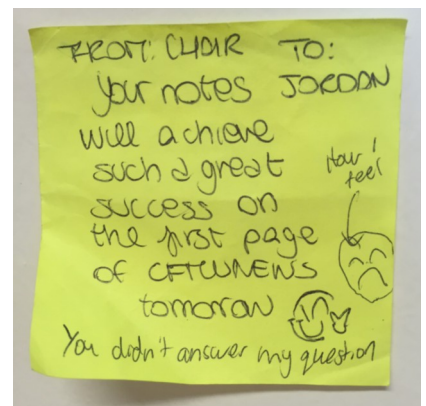 FROM: CHAIR TO:
your notes JORDAN
will achieve
such a great
success on
the first page
of CFTCUNEWS
tomorow
How I
feel
You didn't answer my question